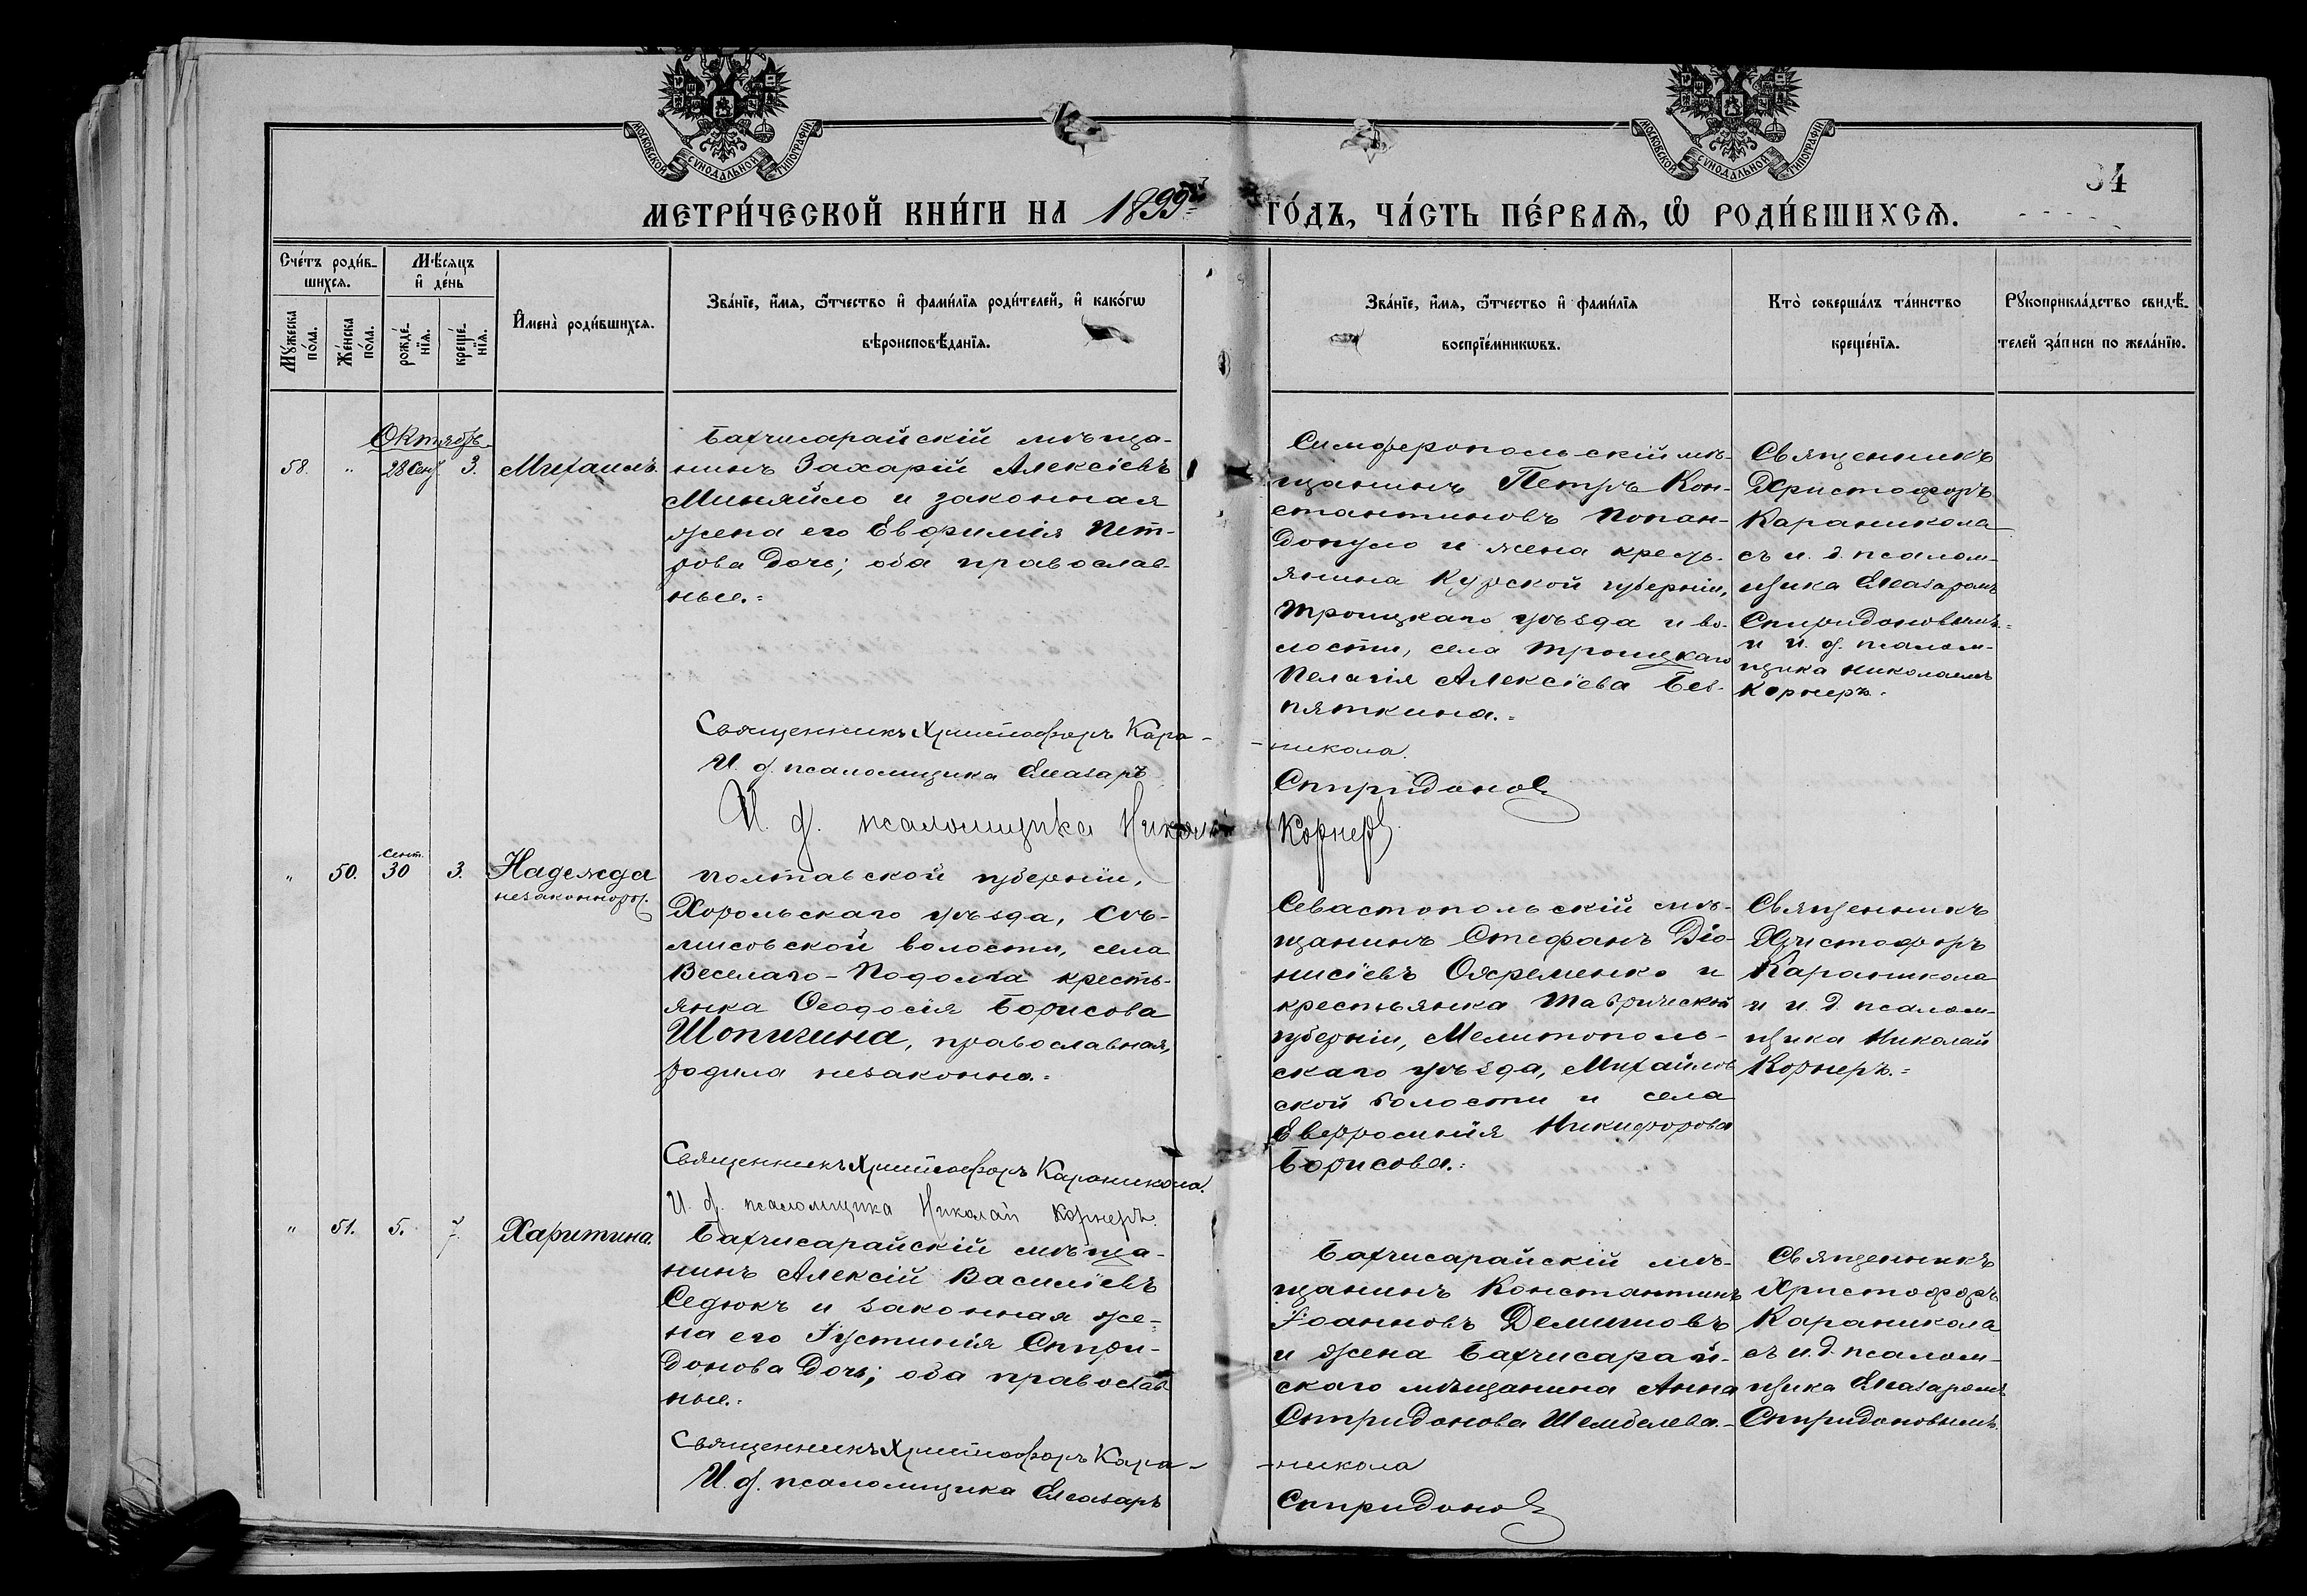 МОСКОВСКОЙ СѴНОДАЛЬНОЙ ТИПОГРАФІИ
МОСКОВСКОЙ СѴНОДАЛЬНОЙ ТИПОГРАФІИ
34
МЕТРИ́ЧЕСКОЙ КНИ́ГИ НА 1899й ГО́ДЪ, ЧА́СТЬ ПЕ́РВАѦ, Ѡ҆ РОДИ́ВШИХСѦ.
Сче́тъ роди́в-
шихсѧ.
Мꙋ́жеска по́ла.
Же́нска по́ла.
Мѣ́сяцъ
и҆ де́нь
рожде́-нїѧ.
креще́-нїѧ.
И҆мена̀ роди́вшихсѧ.
Зва́нїе, и҆́мѧ, ѻ҆́тчество и҆ фами́лїѧ роди́телей, и҆ како́гѡ
вѣроисповѣ́данїѧ.
Зва́нїе, и҆́мѧ, ѻ҆́тчество и҆ фами́лїѧ
воспрїе́мникѡвъ.
Кто̀ соверша́лъ та́инство
креще́нїѧ.
Рꙋкоприкла́дство свидѣ́-
телей за́писи по жела́нїю.
Октябрь
58. " 28 Сент. 3. Михаилъ.
Бахчисарайскій мѣща-
нинъ Захарій Алексіевъ
Миняйло и законная
жена его Евфимія Пет-
рова дочь; оба православ-
ные.=
Симферопольскій мѣ-
щанинъ Петръ Кон-
стантиновъ Попан-
допуло и жена кресть-
янина Курской губерніи,
Троицкаго уѣзда и во-
лости, села Троицкаго
Пелагія Алексіева Без-
пяткина.=
Священникъ
Христофоръ
Караникола
съ и. д. псалом-
щика Елеазаромъ
Спиридоновымъ
и и. д. псалом-
щика Николаемъ
Корнеръ.
Священникъ Христофоръ Кара-
-никола.
И. д. псаломщика Елеазаръ
Спиридоновъ
И. д. псаломщика Николай
Корнеръ
" 50. Сент. 30 3. Надежда
незаконнорож.
Полтавской губерніи,
Хорольскаго уѣзда,
волости, села
Веселаго-Подола кресть-
янка Ѳеодосія Борисова
Шопигина, православная,
родила незаконно.=
Севастопольскій мѣ-
щанинъ Стефанъ Діо-
нисіевъ и
крестьянка Таврической
губерніи, Мелитополь-
скаго уѣзда, Михайлов-
ской волости и села
Евфросинія Никифорова
Борисова.=
Священникъ
Христофоръ
Караникола
и и. д. псалом-
щика Николай
Корнеръ.=
Священникъ Христофоръ Караникола.
И. д. псаломщика Николай Корнеръ.
" 51. 5. 7. Харитина.
Бахчисарайскій мѣща-
нинъ Алексій Василіевъ
Седюкъ и законная же-
на его Іустинія Спири-
донова дочь; оба православ
ные.=
Бахчисарайскій мѣ-
щанинъ Константинъ
Іоанновъ
и жена Бахчисарай-
скаго мѣщанина Анна
Спиридонова Шембелева.-
Священникъ
Христофоръ
Караникола
съ и. д. псалом-
щика Елеазаромъ
Спиридоновымъ.
Священникъ Христофоръ Кара-
-никола
И. д. псаломщика Елеазаръ
Спиридоновъ